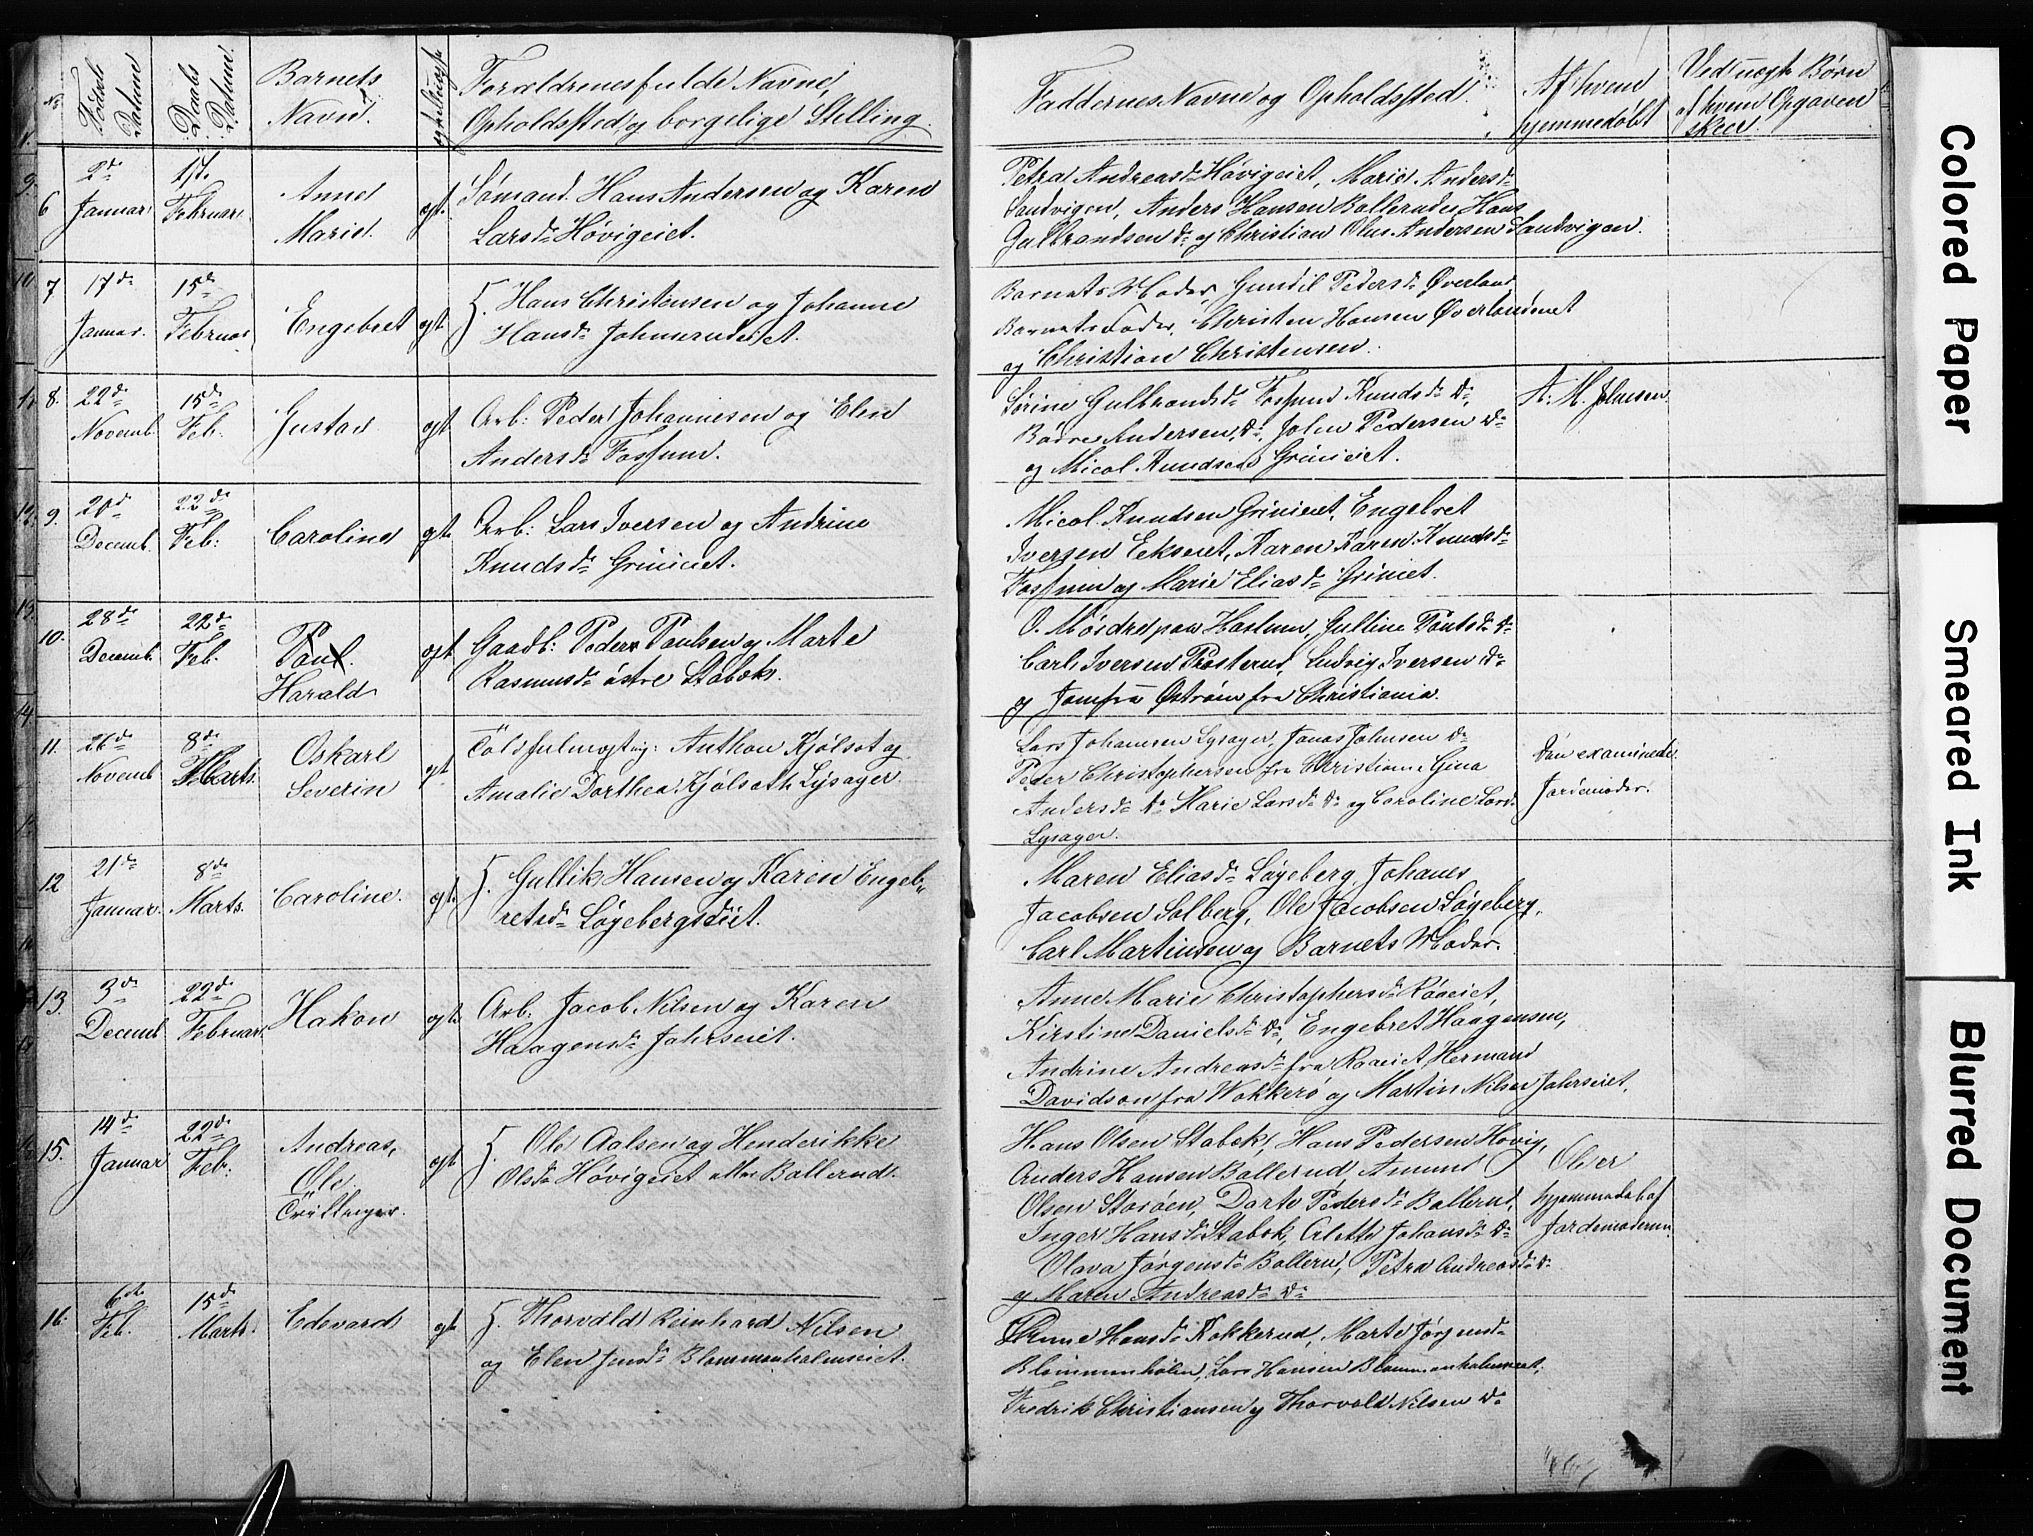 No
Fødsels Datum
Daabs Datum.
Barnets
Navn.
Forældrenes fulde Navne,
Opholdssted og borgelige Stilling.
Faddernes Navne og Opholdssted.
Af hvem
hjemmedøbt
Ved uægte Børn
af hvem Opgaven
skeer.
6
2de
Januar
17de
Februar
Anne
Marie.
egt.
Sømand Hans Andersen og Karen
Larsd. Høvigeiet.
Petra Andreasd. Høvigeiet, Marie Andersd.
Sandvigen, Anders Hansen Ballerud, Hans
Gulbrandsen do og Christian Olus Andersen Sandvigen.
7
17de
Januar.
15de
Februar
Engebret
egt.
H. Hans Christensen og Johanne
Hansd. Johnsrudeiet.
Barnets Moder, Gunild Pedersd. Øverland
Barnets Fader, Christen Hansen Øverlandeiet
og Christian Christensen.
8.
22de
Novemb.
15de
Feb.
Gustav
egt.
Arb: Peder Johannesen og Elen
Andersd. Fossum.
Sørine Gulbrandsd. Fossum Knudsd. do,
Andersen, do, John Pedersen do
og Micol. Knudsen Grinieiet.
A. M. Johnsen.
9.
20de
Decemb.
22de
Feb:
Caroline
egt.
Arb: Lars Iversen og Andrine
Knudsd. Grinieiet.
Micol. Knudsen Grinieiet, Engebret
Iversen Eekseiet, Karen Karen Knudsd.
Fossum og Marie Eliasd. Grinieiet.
10.
28de
Decemb.
22de
Feb.
Paul.
Harald
egt.
Gaadb: Peder Paulsen og Marte
Rasmusd. østre Stabæk.
O. Haslum, Gulline do
Carl Iversen Presterud, Ludvig Iversen do
og Jomfru Østrøm fra Christiania.
11.
26de
Novemb
8de
Marts.
Oskarl
Severin
egt.
Toldfulmægtig: Anthon Kjølset og
Amalie Dorthea Kjølseth Lysager.
Lars Johannsen Lysager, Jonas Johnsen do
Peder Christophersen fra Christiania, Gina
Andersd. do Marie Larsd. do og Caroline Larsd.
Lysager.
Den examinede
Jordemoder.
12
21de
Januar.
8de
Marts.
Caroline.
egt.
H. Gullik Hansen og Karen Engeb„
retsd. Løgebergseiet.
Maren Eliasd. Løgeberg, Johanes
Jacobsen Solberg, Ole Jacobsen Løgeberg,
Carl Martinsen og Barnets Moder.
13.
3de
Decemb
22de
Februar.
Hakon
egt.
Arb. Jacob Nilsen og Karen
Haagensd. Jahrseiet.
Anne Marie Christophersd. Raaeiet,
Kirstine Danielsd. do, Engebret Haagensen,
Andrine Andreasd. fra Raaeiet, Hermand
Davidson fra Wækkerø og Martin Nilsen Jahrseiet.
15.
14de
Januar
22de
Feb:
Andreas,
Ole
Tvillinger.
egt
H. Ole Aalsen og Henderikke
Olsd. Høvigeiet eller Ballerud.
Hans Olsen Stabæk, Hans Pedersen Høvig,
Anders Hansen Ballerud, Amund
Olsen Storøen, Dorte Pedersd. Ballerud,
Inger Hansd. Stabek, Arlette Johansd. do
Olava Jørgensd. Ballerud, Petra Andreasd. do
og Maren Andreasd. do
Ole er
hjemmedøbt af
Jordemoderen.
16.
6de
Feb.
15de
Marts.
Edevard
egt.
H. Thorvald Reinhard Nilsen
og Elen Jensd. Blommenholmseiet.
Anne Hansd. Kokkerud, Marte Jørgensd.
Blommenholm, Lars Hansen Blommenholmseiet,
Fredrik Christiansen og Thorvald Nilsen do
Colored Paper
Smeared Ink
Blurred Document